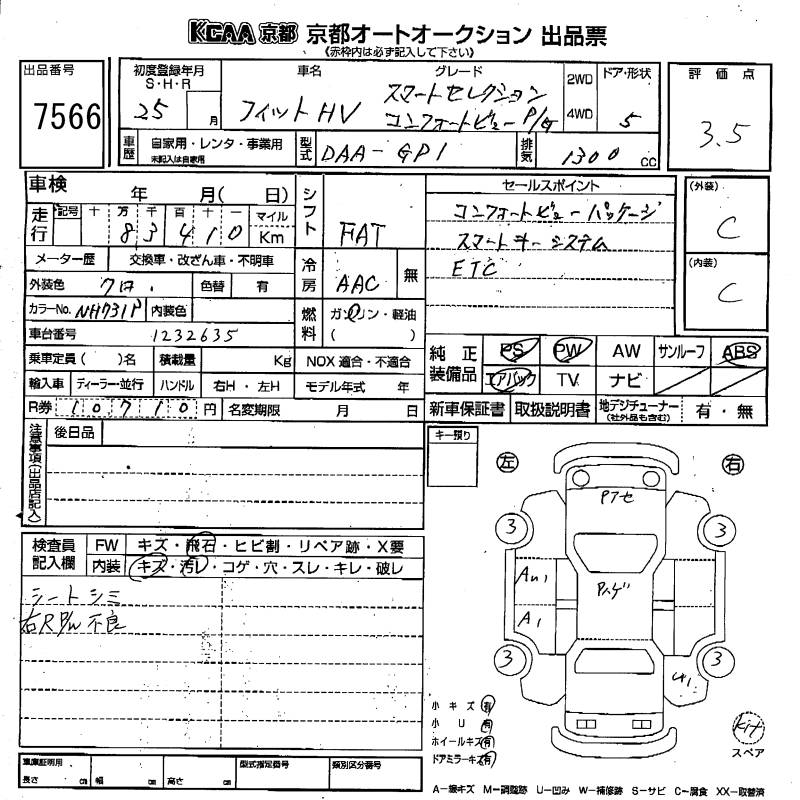 KCAA 京都 京都オートオークション 出品票
(赤枠内は必ず記入して下さい)
出品番号
7566
初度登録年月
S・H・R
25 月
車名
フィットHV
グレード
スマートセレクション
コンフォートビュー P/G
2WD
4WD
ドア・形状
5
評価点
3.5
車歴
自家用・レンタ・事業用
未記入は自家用
型式
DAA-GP1
排気
1300 cc
車検 年 月( 日)
走行
記号 十 万 千 百 十 一
8 3 4 1 0
マイル
Km
メーター歴 交換車・改ざん車・不明車
外装色 クロ 色替 有
カラーNo. NH731P 内装色
車台番号 1232635
乗車定員( )名 積載量 Kg
輸入車 ディーラー・並行 ハンドル 右H・左H
R券 10710 円 名変期限 月 日
シフト
FAT
冷房
AAC 無
燃料
ガソリン・軽油
( )
NOX 適合・不適合
モデル年式 年
セールスポイント
コンフォートビューパッケージ
スマートキーシステム
ETC
(外装)
C
(内装)
C
純正装備品
PS PW AW サンルーフ ABS
エアバック TV ナビ
新車保証書 取扱説明書 地デジチューナー
(社外品も含む)
有・無
注意事項(出品店記入)
後日品
キー預り
左
右
検査員記入欄
FW キズ・飛石・ヒビ割・リペア跡・X要
内装 キズ・汚レ・コゲ・穴・スレ・キレ・破レ
シートシミ
右R P/W 不良
Pアセ
3
3
AU1
Pハゲ
A1
3
3
U1
小キズ 有
小U 有
ホイールキズ 有
ドアミラーキズ 有
Kit
スペア
車庫証明用
長さ cm 幅 cm 高さ cm
型式指定番号
類別区分番号
A−線キズ M−調整跡 U−凹み W−補修跡 S−サビ C−腐食 XX−取替済